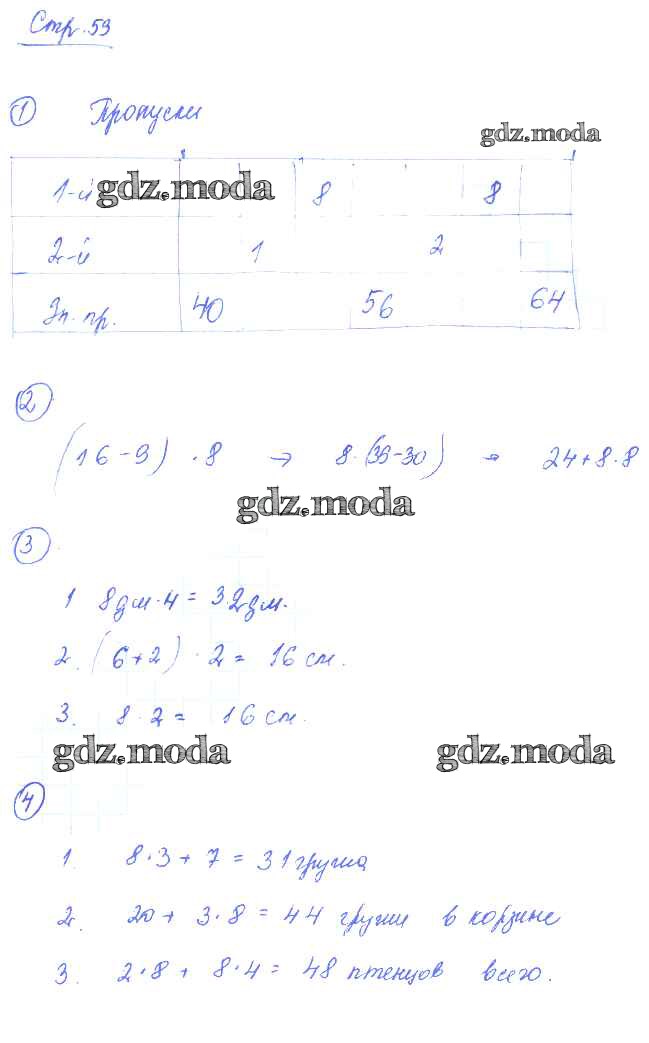 Стр. 53
1 Пропуски
gdz.moda
1-й gdz.moda 8 8
2-й 1 2
Зн. пр. 40 56 64
2
(16-9) · 8 → 8·(36-30) → 24+8·8
gdz.moda
3
1 8дм·4 = 32дм.
2. (6+2) · 2 = 16 см.
3. 8·2 = 16 см.
gdz.moda gdz.moda
4
1. 8·3 + 7 = 31 груша
2. 20 + 3·8 = 44 груши в корзине
3. 2·8 + 8·4 = 48 птенцов всего.